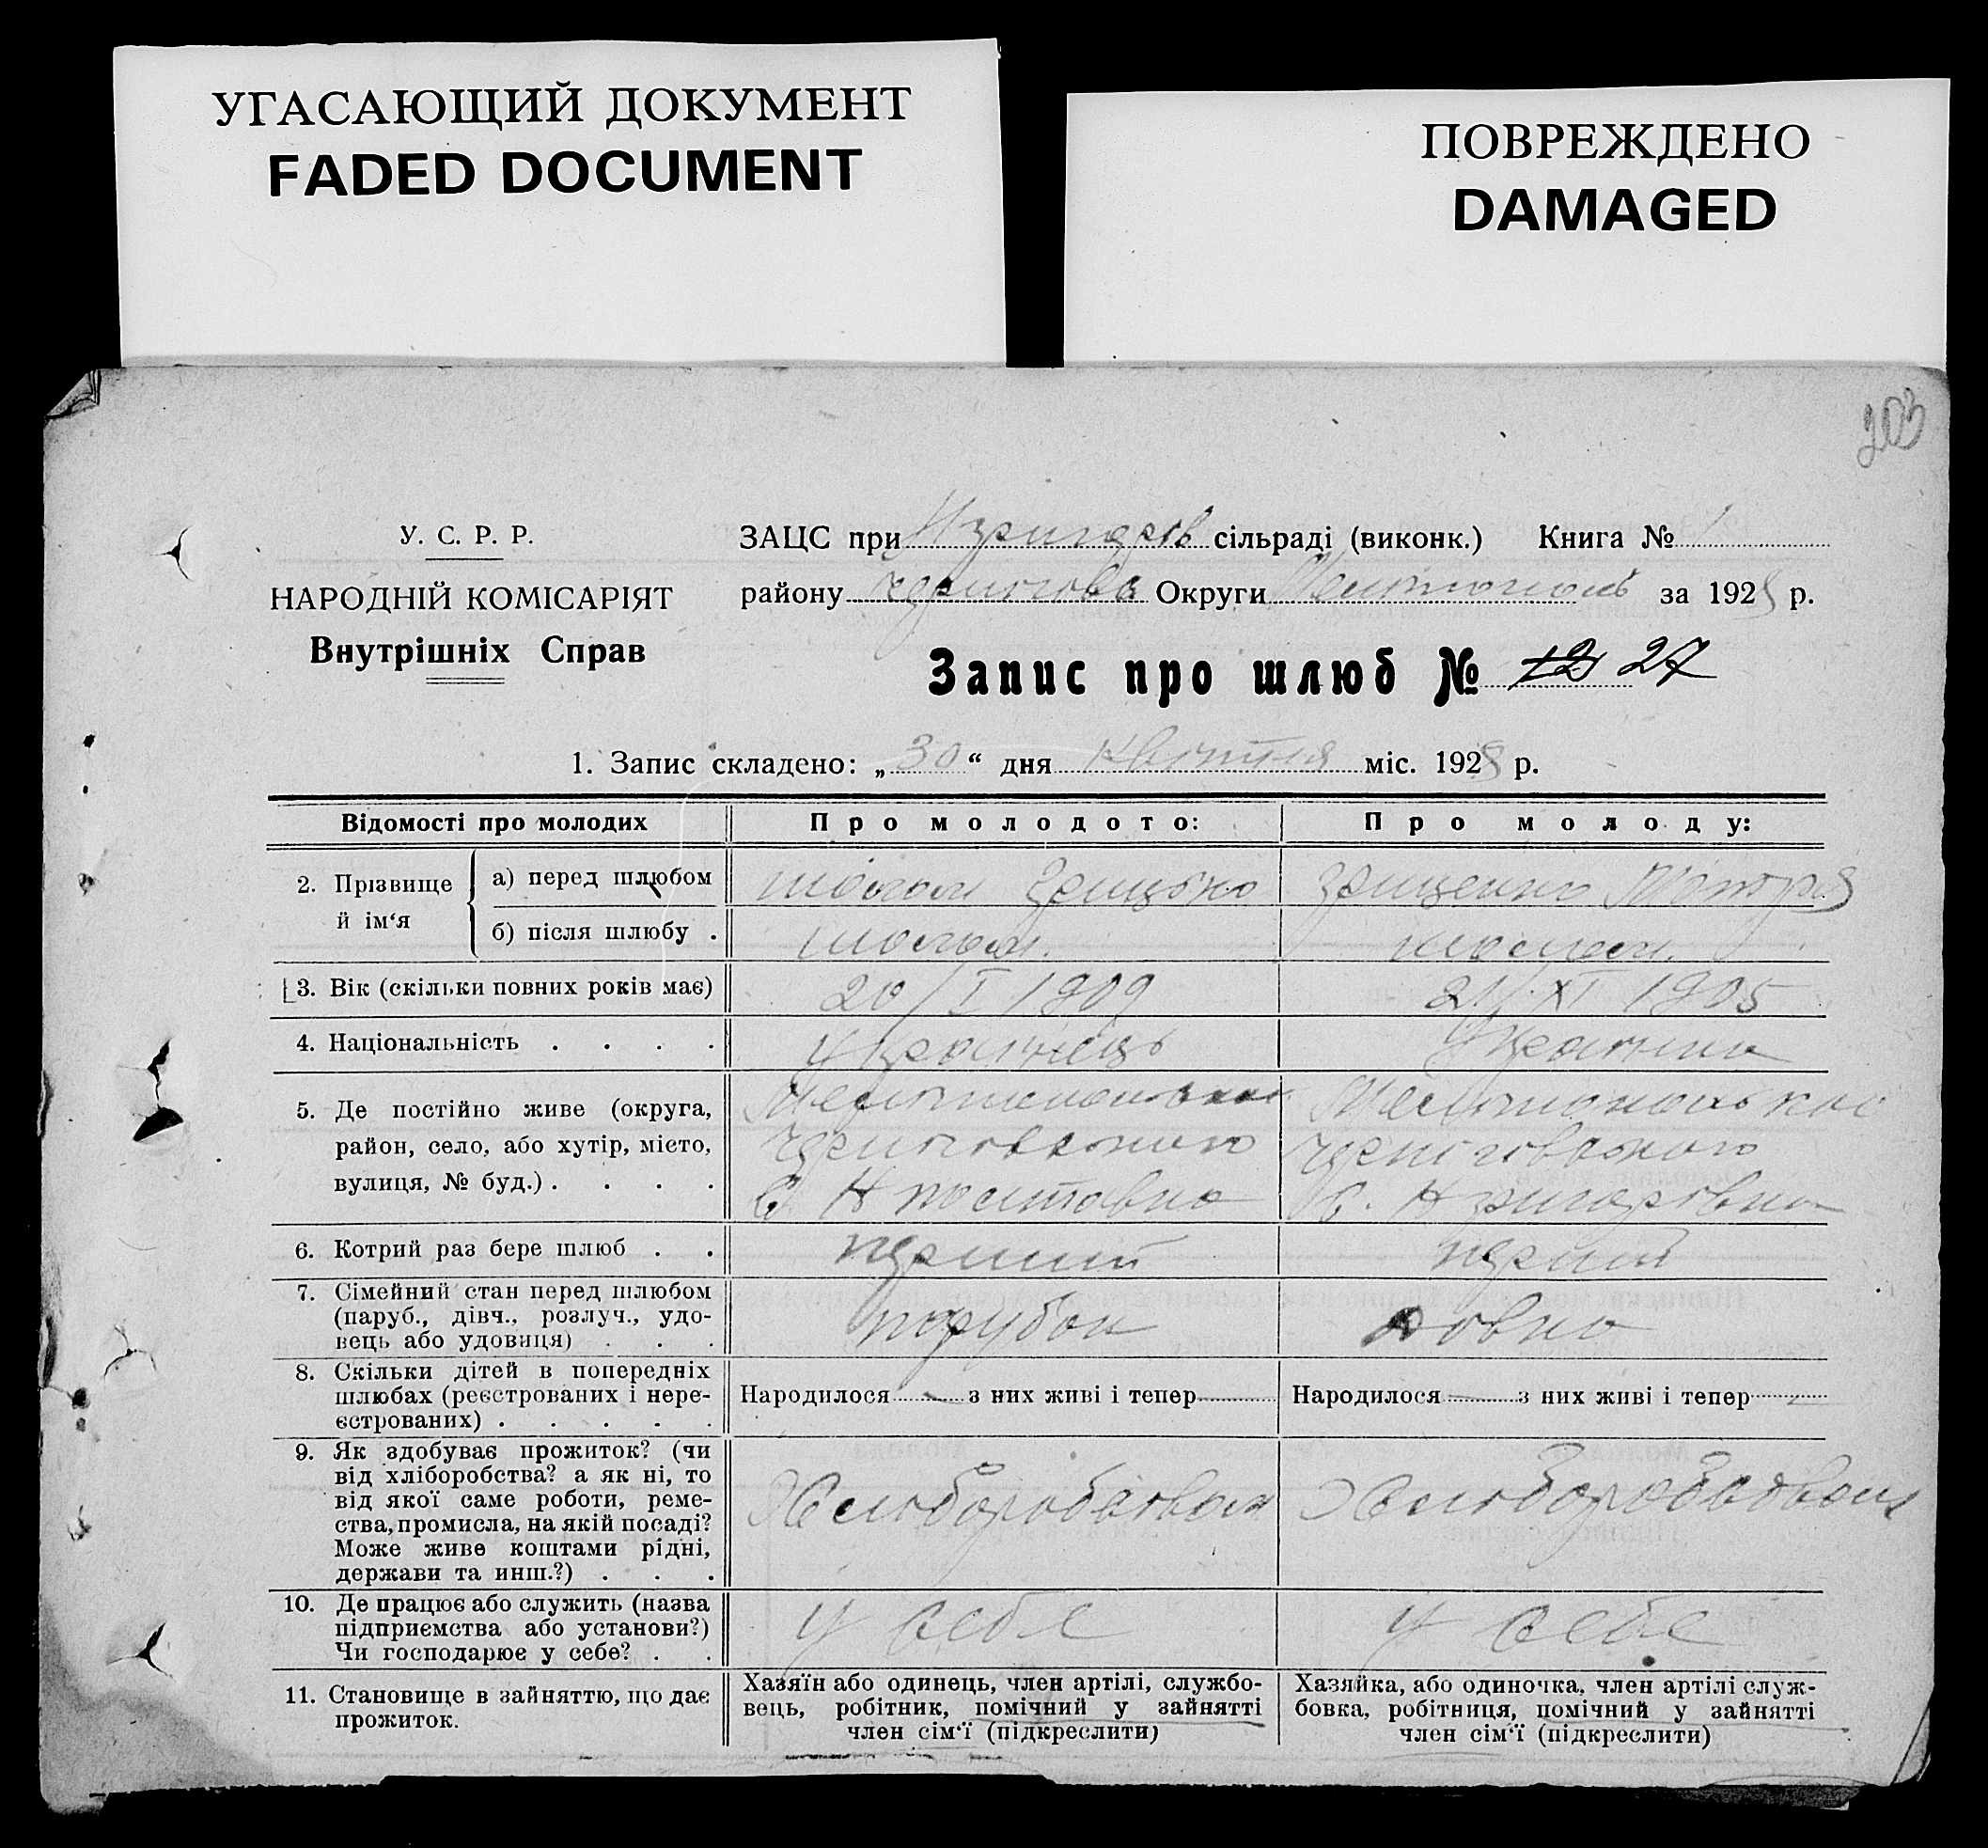 УГАСАЮЩИЙ ДОКУМЕНТ
FADED DOCUMENT
ПОВРЕЖДЕНО
DAMAGED
203
У. С. Р. Р.
НАРОДНІЙ КОМІСАРІЯТ
Внутрішніх Справ
ЗАЦС при сільраді (виконк.) Книга № 1
району Округи за 1928 р.
Запис про шлюб № 12 27
1. Запис складено: „ 30 “ дня квітня міс. 1928 р.
Відомості про молодих
Про молодого:
Про молоду:
2. Прізвище й ім‘я
а) перед шлюбом
Шолом Грицько
Грищенко Мотря
б) після шлюбу .
Шолом.
Шолом.
3. Вік (скільки повних років має)
20/I 1909
21/XI 1905
4. Національність . . . .
Українець
Українка
5. Де постійно живе (округа,
район, село, або хутір, місто,
вулиця, № буд.) . . . .
С
С. Н
6. Котрий раз бере шлюб . .
перший
перший
7. Сімейний стан перед шлюбом
(паруб., дівч., розлуч., удо-
вець або удовиця) . . .
парубок
8. Скільки дітей в попередніх
шлюбах (реєстрованих і нере-
єстрованих) . . . . .
Народилося — з них живі і тепер
Народилося — з них живі і тепер —
9. Як здобуває прожиток? (чи
від хліборобства? а як ні, то
від якої саме роботи, реме-
ства, промисла, на якій посаді?
Може живе коштами рідні,
держави та инш.?) . . .
10. Де працює або служить (назва
підприємства або установи?)
Чи господарює у себе? . .
у себе
у себе
11. Становище в зайняттю, що дає
прожиток.
Хазяїн або одинець, член артілі, службо-
вець, робітник, помічний у зайнятті
член сім‘ї (підкреслити)
Хазяйка, або одиночка, член артілі служ-
бовка, робітниця, помічний у зайнятті
член сім‘ї (підкреслити)